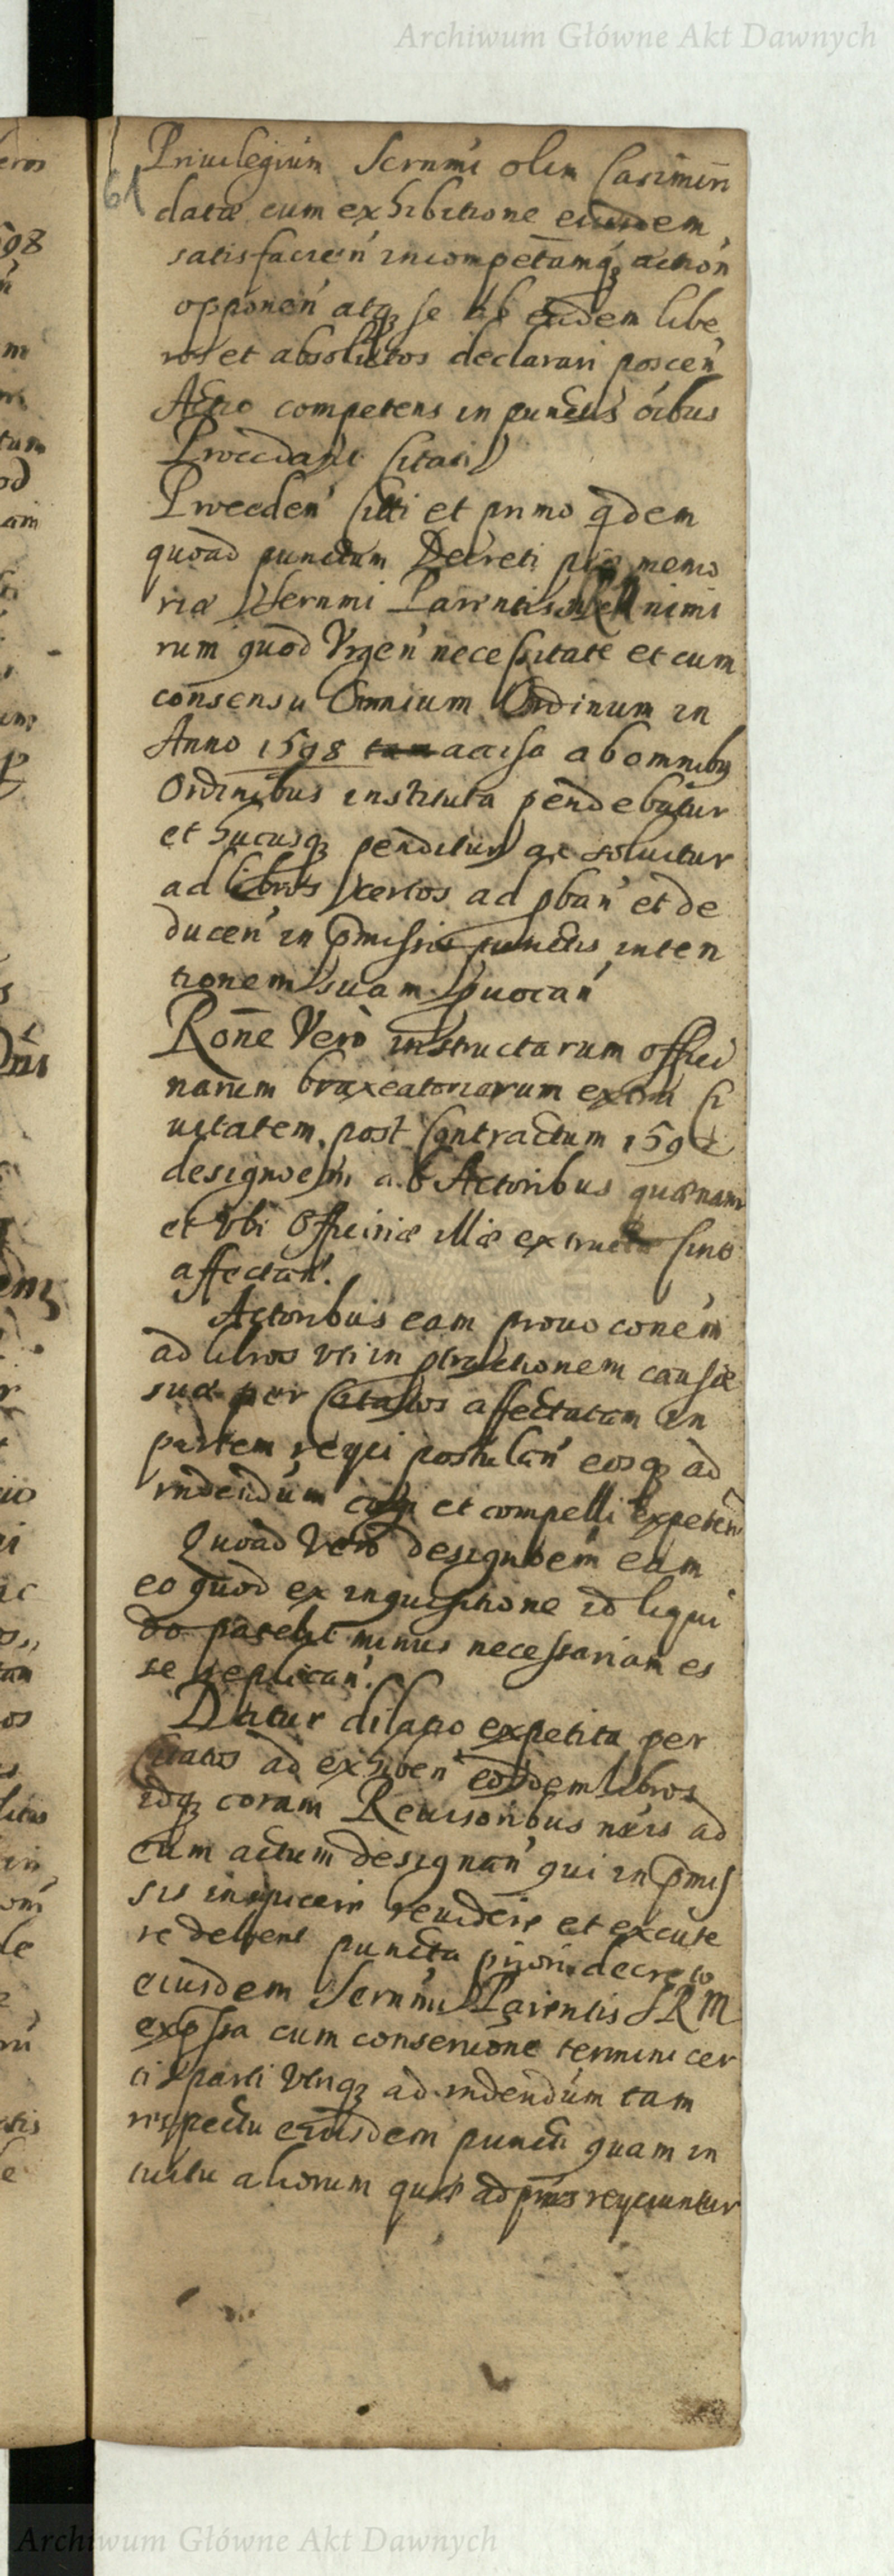 Archiwum Główne Akt Dawnych
61
Priuilegium Sernmi olim Casimiri
datae cum exhibitione eiusdem
satisfacien incompetamq, action
opponen atq, se ab eadem libe
ros et absolutos declarari poscen
Actio competens in punctis oibus
Procedant Citati
Proceden Citti et primo qdem
quoad punctum Decreti piae memo
riae Sernmi Parentis nimi
rum quod Vrgen necessitate et cum
consensu Omnium Ordinum in
Anno 1598 accisa ab omnibus
Ordinibus instituta pendebatur
et hucusq, penditur ac soluitur
ad libros certos ad pban et de
ducen in pmissis punctis inten
tionem suam puocan
Rone Vero instructarum offici
narum braxeatoriarum extra Ci
uitatem post Contractum 1592
designoem ab Actoribus quaenam
et Vbi Officinae illae extructae sint
affectan.
Actoribus eam prouoconem
ad libros vti in ptractionem causae
suae per Citatos affectatam in
partem reyci postulan eosq, ad
rndendum cogi et compelli expeten
Quoad Vero designoem eam
eo quod ex inquisitione id liqui
do patebit minus necessariam es
se replican.
Datur dilatio expetita per
Citatos ad exhiben eosdem libros
idq, coram Reuisoribus nris ad
eum actum designan qui in pmis
sis inspicere reuidere et excute
re debent puncta priori decreto
eiusdem Sernmi Parentis SRM
expssa cum conseruone termini cer
ti parti Vtriq, ad rndendum tam
respectu eiusdem puncti quam in
tuitu aliorum quae ad pns reyciuntur
Archiwum Główne Akt Dawnych